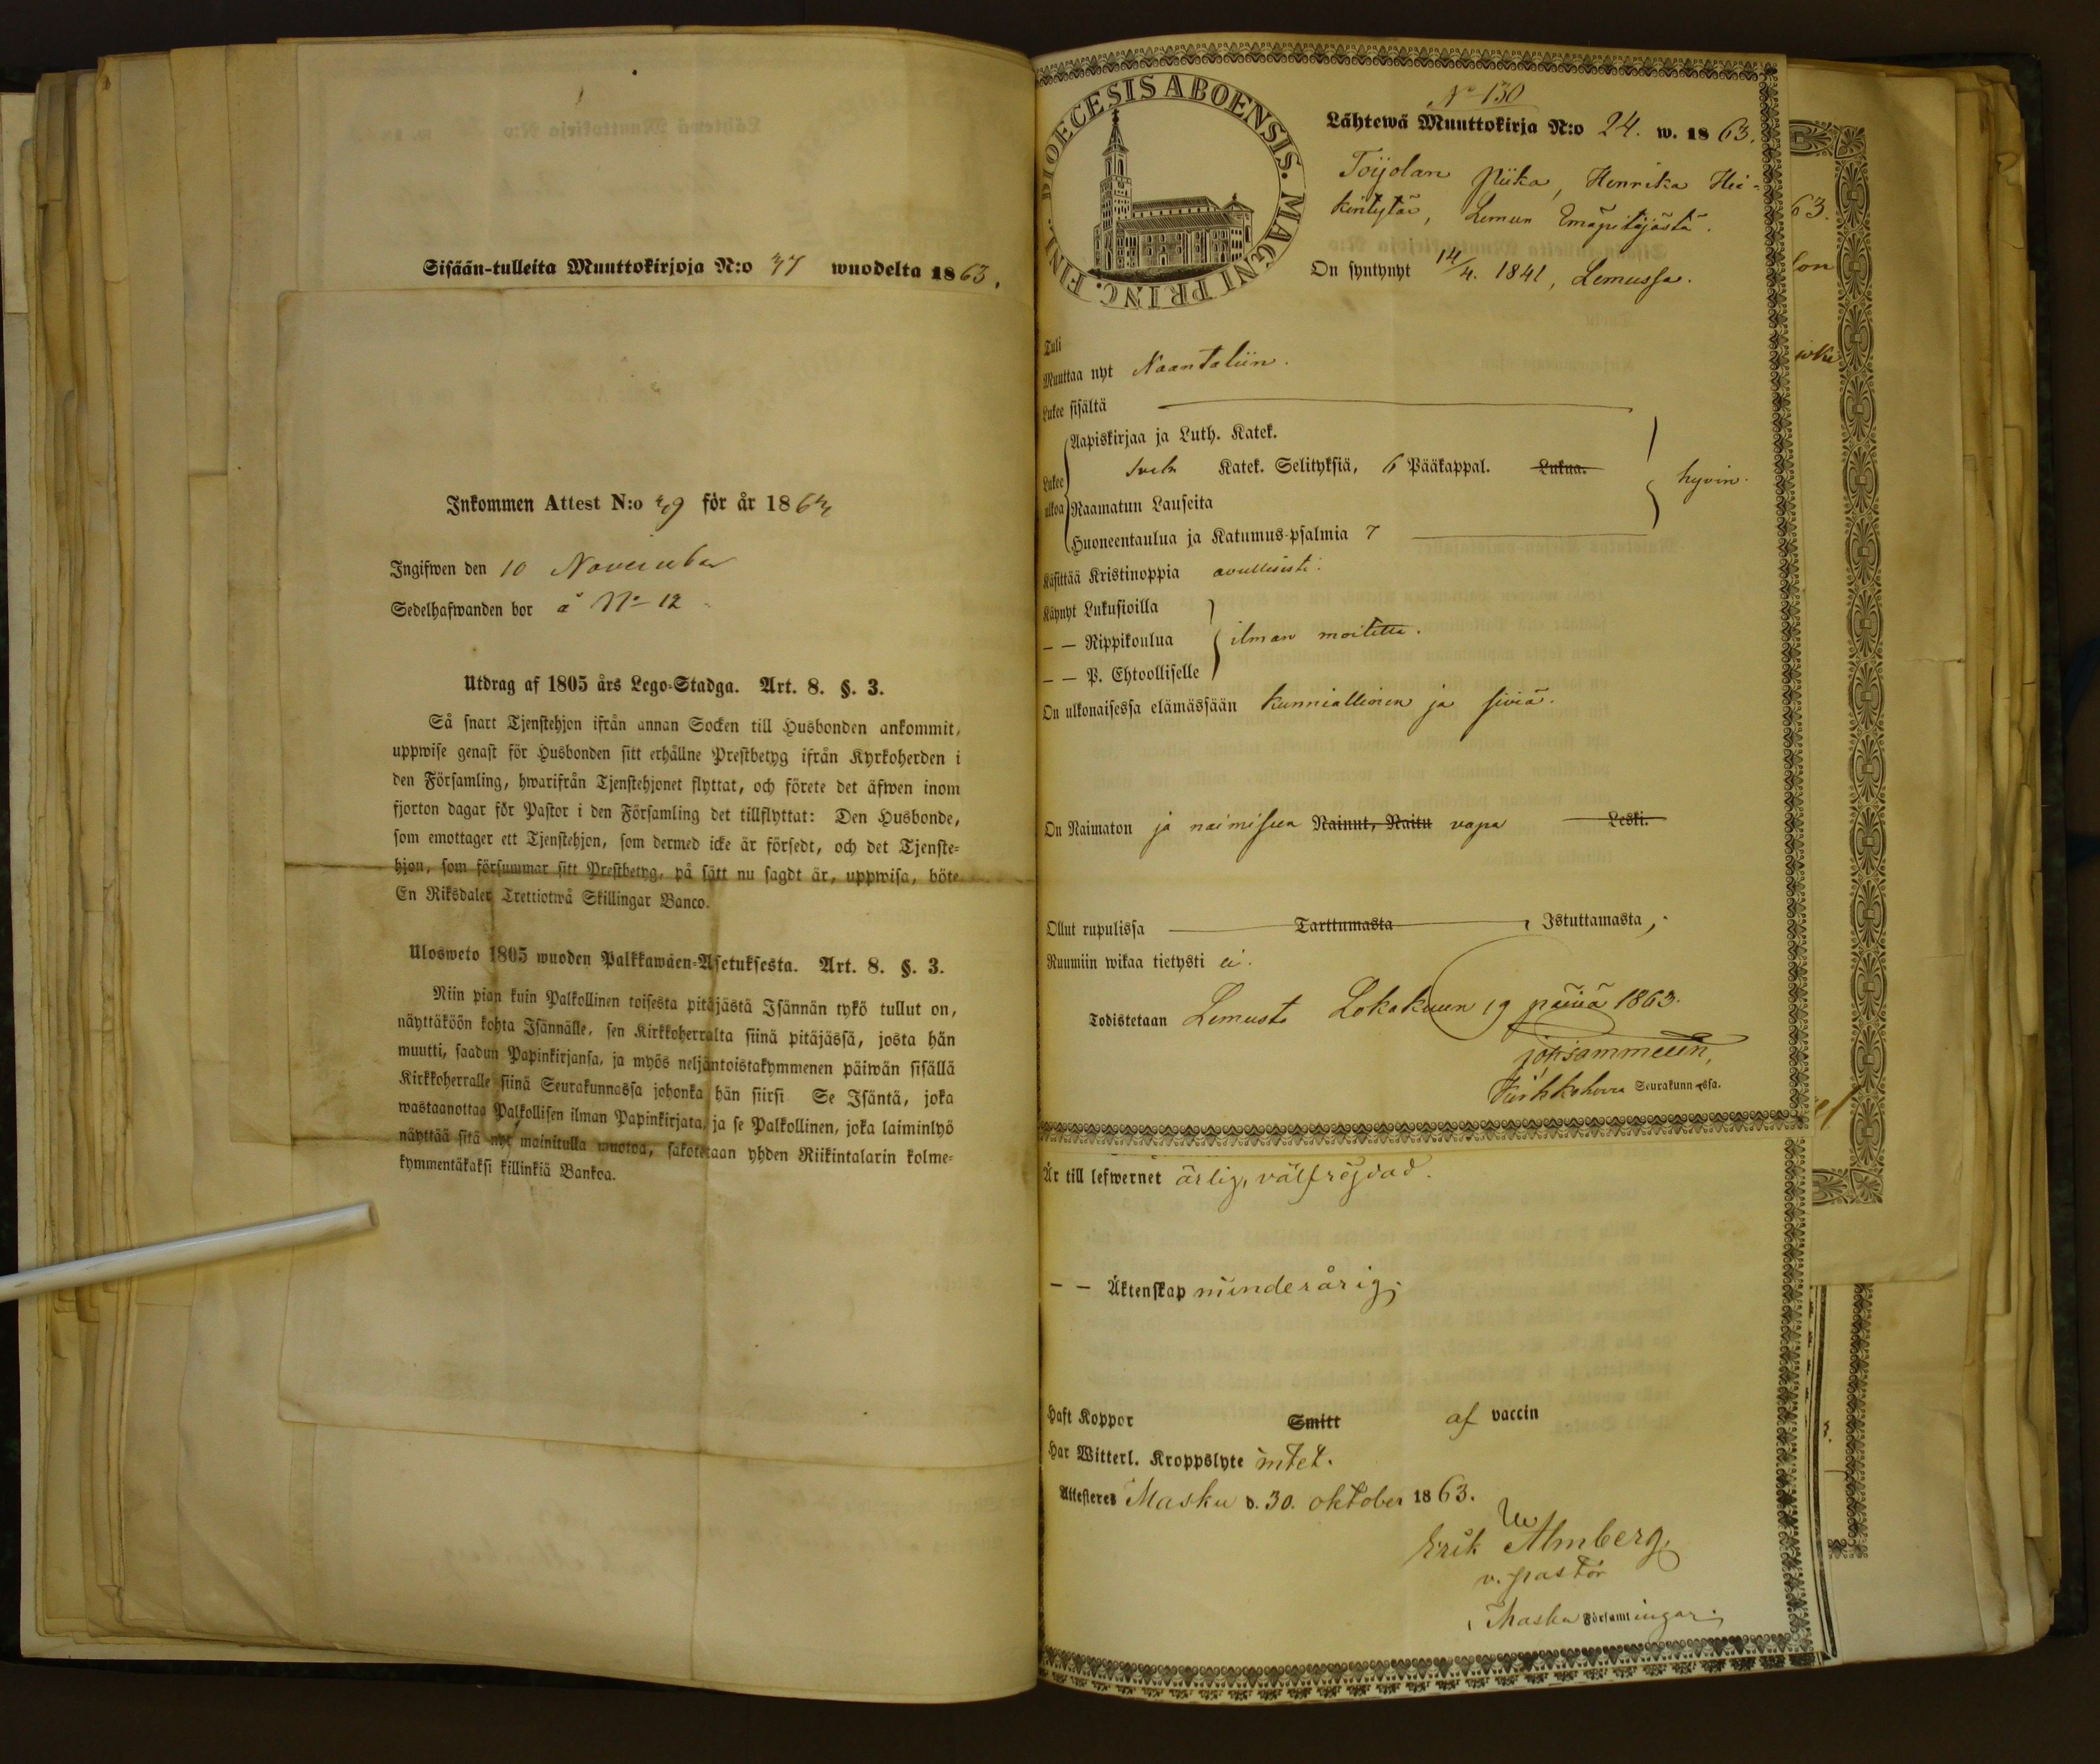 Sisään-tulleita Muuttokirjoja N:o 37 wuodelta 1863.
Inkommen Attest N:o 39 för år 1863
Ingifwen den 10 November
Sedelhafwanden bor å No 12
Utdrag af 1805 års Lego-Stadga. Art. 8. §. 3.
Så snart Tjenstehjon ifrån annan Socken till Husbonden ankommit,
uppwise genast för Husbonden sitt erhållne Prestbetyg ifrån Kyrkoherden i
den Församling, hwarifrån Tjenstehjonet flyttat, och förete det äfwen inom
fjorton dagar för Pastor i den Församling det tillflyttat: Den Husbonde,
som emottager ett Tjenstehjon, som dermed icke är försedt, och det Tjenste-
hjon, som försummar sitt Prestbetyg, på sätt nu sagdt är, uppwisa, böte
En Riksdaler Trettiotwå Skillingar Banco.
Ulosweto 1805 wuoden Palkkawäen-Asetuksesta. Art. 8. §. 3.
Niin pian kuin Palkollinen toisesta pitäjästä Isännän tykö tullut on,
näyttäköön kohta Isännälle, sen Kirkkoherralta siinä pitäjässä, josta hän
muutti, saadun Papinkirjansa, ja myös neljäntoistakymmenen päiwän sisällä
Kirkkoherralle siinä Seurakunnassa johonka hän siirsi Se Isäntä, joka
wastaanottaa Palkollisen ilman Papinkirjata, ja se Palkollinen, joka laiminlyö
näyttää sitä nyt mainitulla muotoa, sakotetaan yhden Riikintalarin kolme-
kymmentäkaksi killinkiä Bankoa.
DIOECESIS ABOENSIS. MAGNI PRINC. FINL.
No 130
Lähtewä Muuttokirja N:o 24. w. 1863.
Toijolan piika, Henrika Hei-
kintytär, Lemun Emäpitäjästä.
On syntynyt 14/4. 1841, Lemussa.
Tuli
Muuttaa nyt Naantaliin.
Lukee sisältä
Aapiskirjaa ja Luth. Katek.
Lukee Sveb Katek. Selityksiä, 6 Pääkappal. Lukua. hyvin.
ulkoa Raamatun Lauseita
Huoneentaulua ja Katumus-psalmia 7
Käsittää Kristinoppia avullisesti.
Käynyt Lukusioilla
— — Rippikoulua ilman moitetta.
— — P. Ehtoolliselle
On ulkonaisessa elämässään kunniallinen ja siviä.
On Naimaton ja naimiseen Nainut, Naitu vapa Leski.
Ollut rupulissa Tarttumasta Istuttamasta,
Ruumiin wikaa tietysti ei.
Todistetaan Lemusta Lokakuun 19 päivä 1863.
Kirkkoherra Seurakunnassa.
Är till lefwernet ärlig, välfrejdad.
— — Äktenskap minderårig.
Haft Koppor Smitt af vaccin
Har Witterl. Kroppslyte intet.
Attesteres Masku d. 30. oktober 1863.
Erik Almberg
v. pastor
i Masku Församlingar.
63.